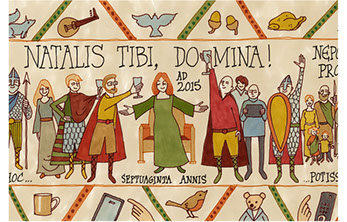 NATALIS TIBI, DOMINA!
AD
2015
NEPO
PRO
HOC...
SEPTUAGINTA ANNIS
...POTISS